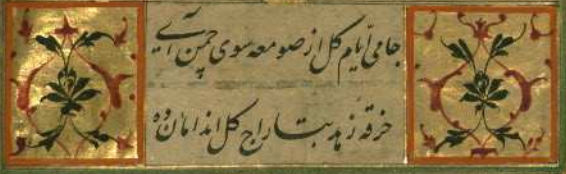 جامی ایام گل از صومعه سوی چمن آی
خرقه زهد بتاراج گل اندامان ده